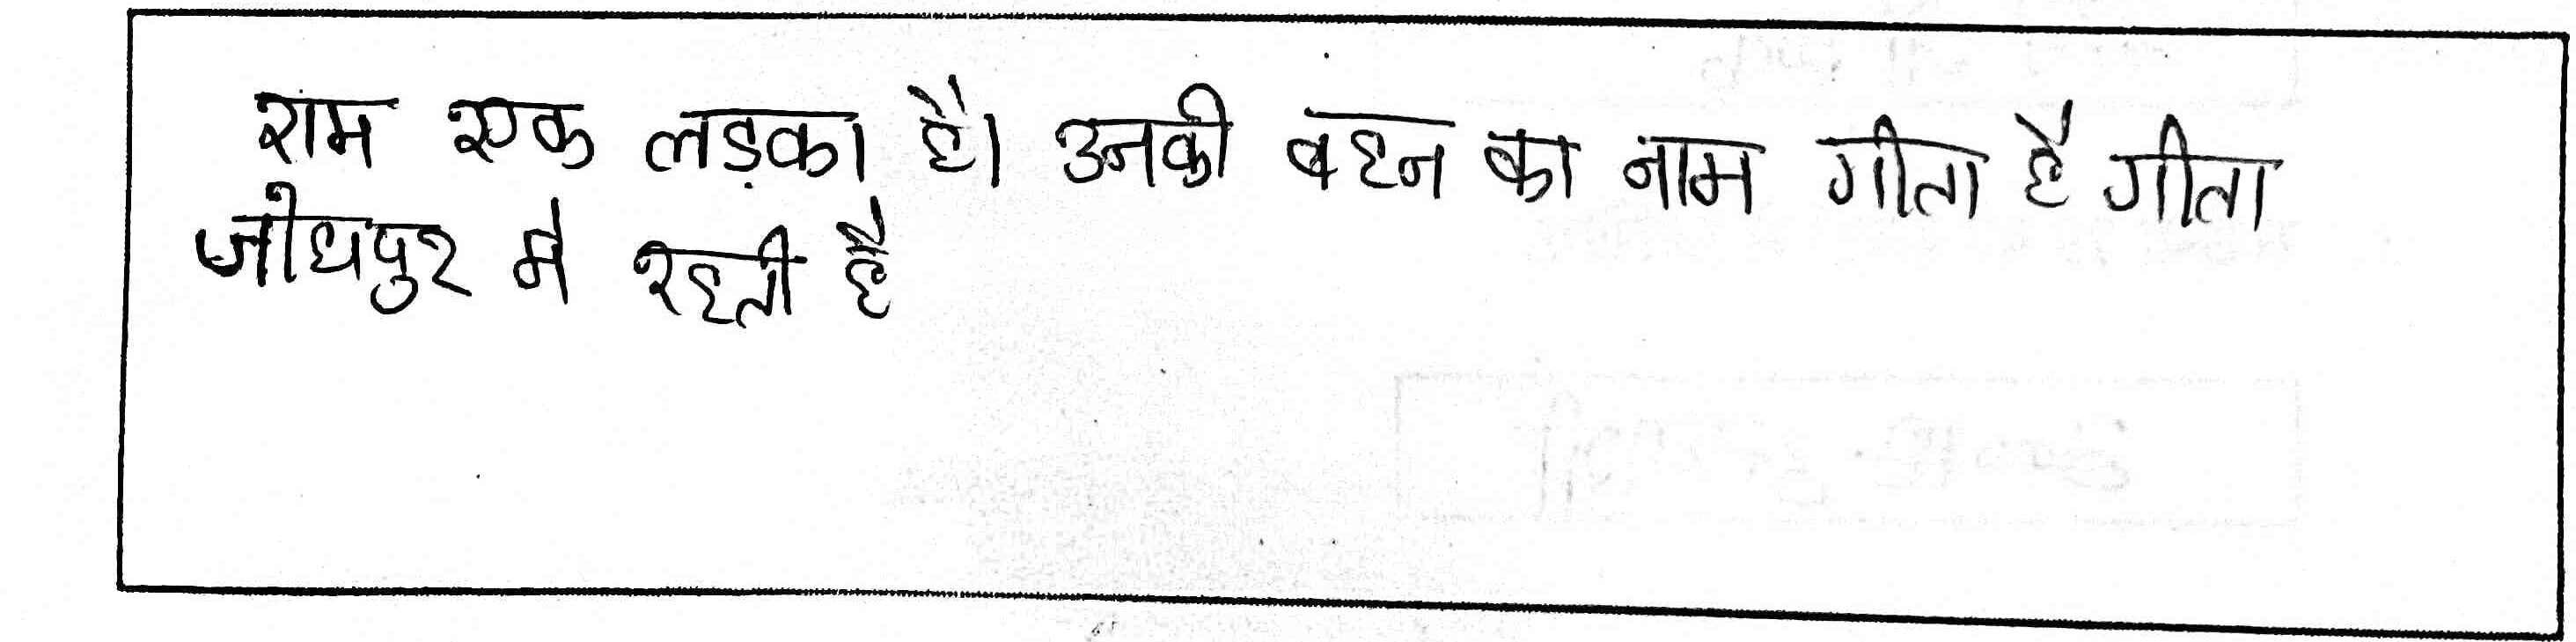 राम एक लड़का है। उनकी बहन का नाम गीता है गीता
जोधपुर मे रहती है